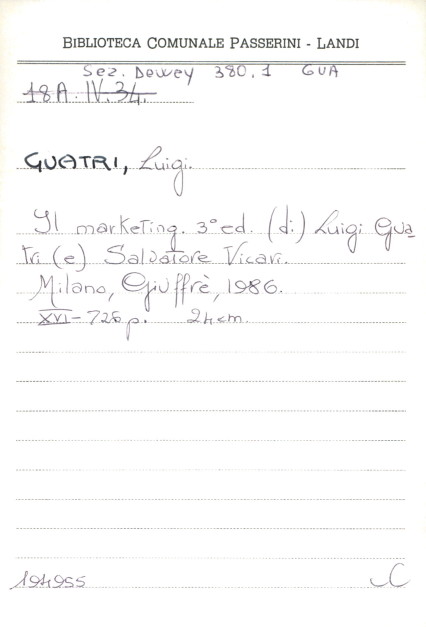 BIBLIOTECA COMUNALE PASSERINI - LANDI
Sez. Dewey 380.1 GUA
18A. IV. 34.
GUATRI, Luigi.
Il marketing. 3° ed. (di) Luigi Gua
tri (e) Salvatore Vicari.
Milano, Giuffrè, 1986.
XVI-726 p. 24 cm.
194955